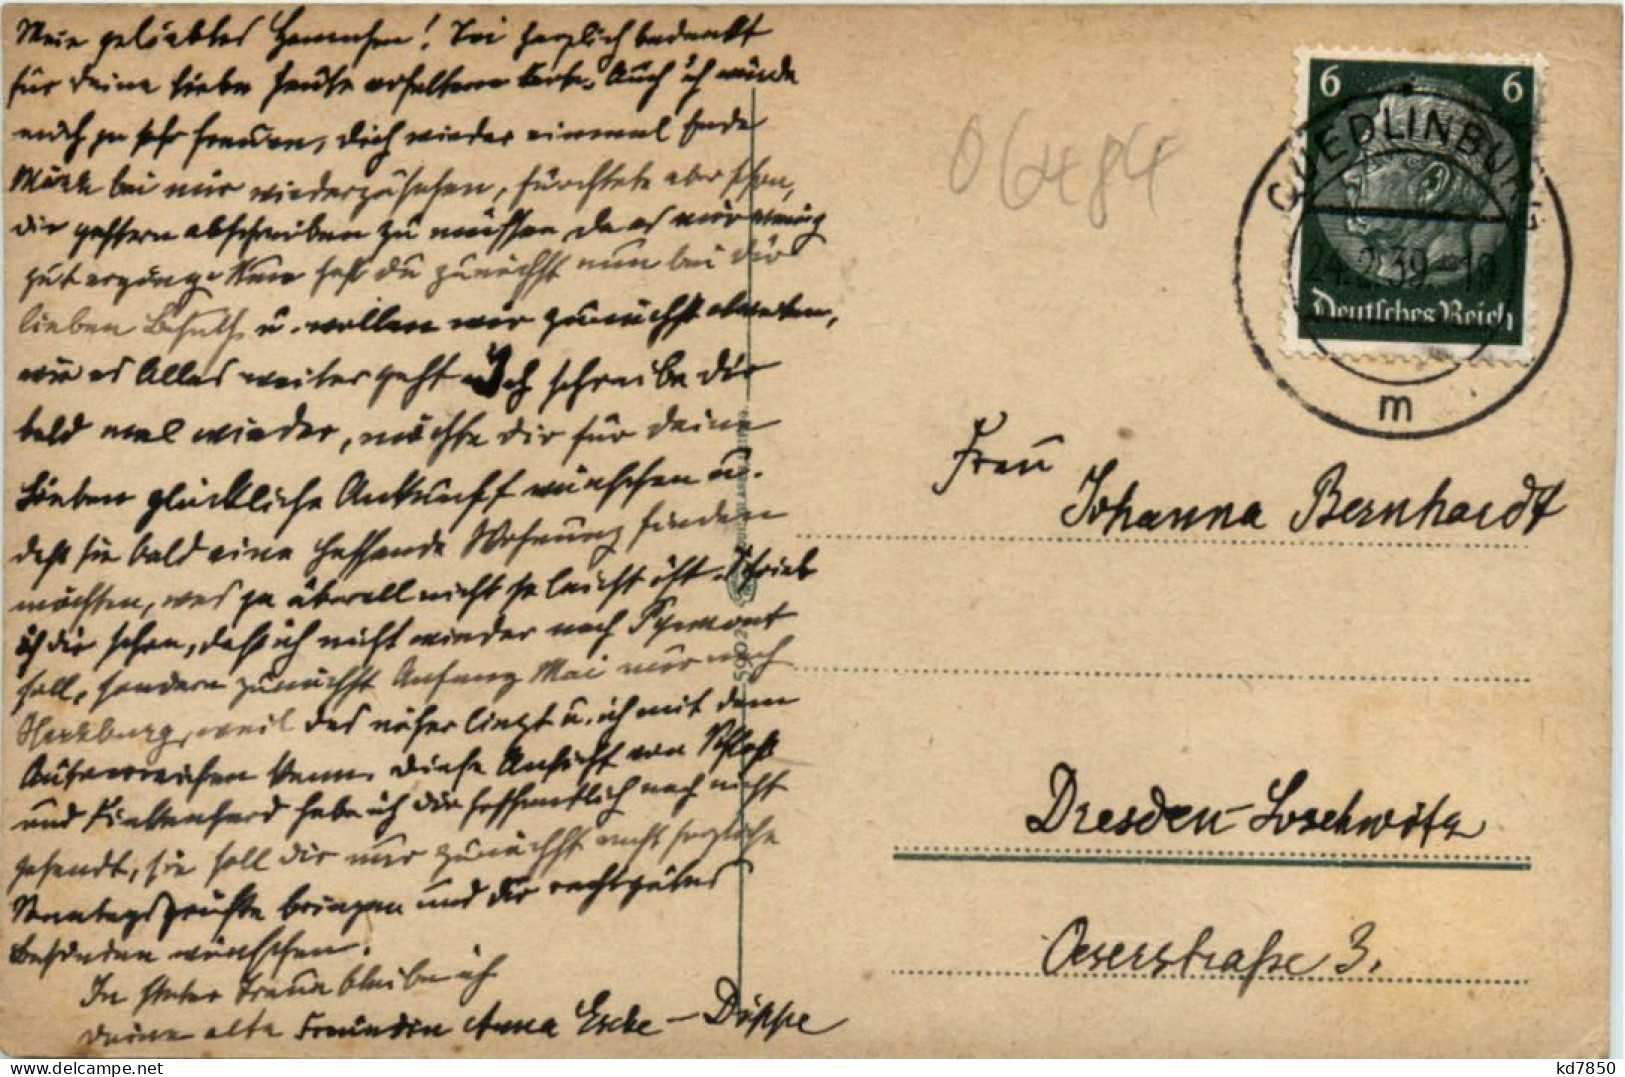 Mein geliebtes Hannchen! Sei herzlich bedankt
für Deine lieben heute erhaltene Karte. Auch ich würde
mich ja sehr freuen, Dich wieder einmal Ende
März bei mir wiederzusehen, fürchtete aber schon,
dir gestern abschreiben zu müssen da es mir wenig
gut erginge. Nun hast Du zunächst nun bei Dir
lieben Besuch u. wollen wir zunächst abwarten,
wie es Alles weiter geht. Ich schreibe Dir
bald mal wieder, möchte Dir für Deine
Lieben glückliche Ankunft wünschen u.
daß sie bald eine passende Wohnung finden
möchten, was ja überall nicht so leicht ist. Schrieb
ich Dir schon, daß ich nicht wieder nach Pyrmont
soll, sondern zunächst Anfang Mai nur nach
Harzburg, weil das näher liegt u. ich mit dem
Auto reisen kann. Diese Ansicht von Schloß
und Finkenherd habe ich Dir hoffentlich noch nicht
gesandt, sie soll Dir nur zunächst recht herzliche
Sonntagsgrüße bringen und Dir recht gutes
Befinden wünschen.
In steter Treue bleibe ich
Deine alte Freundin Anna Ecke - Düppe
06484
6 6
Deutsches Reich
QUEDLINBURG
24.2.39-19
m
Frau
Johanna Bernhardt
Dresden-Loschwitz
Oeserstraße 3.
kd7850